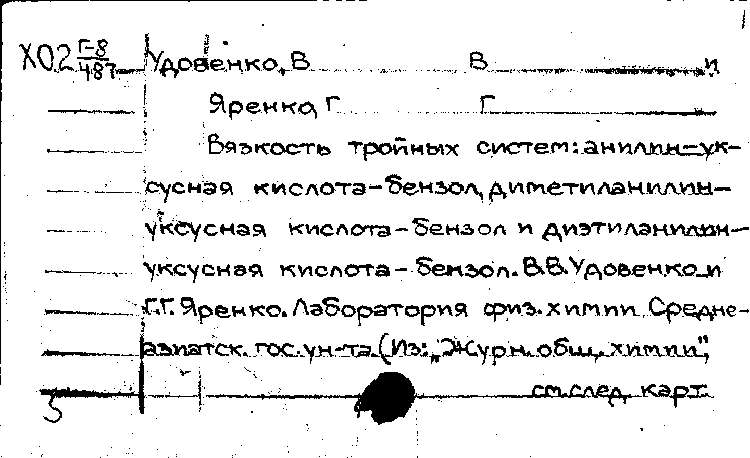 1
Х02 Г-8/487 Удовенко, В В и
Яренко, Г Г
Вязкость тройных систем: анилин-ук-
сусная кислота-бензол, диметиланилин-
уксусная кислота-бензол и диэтиланилин-
уксусная кислота-бензол. В.В. Удовенко и
Г.Г. Яренко. Лаборатория физ. химии Средне-
азиатск. гос. ун-та. (Из: „Журн. общ. химии",
см. след. карт.
5